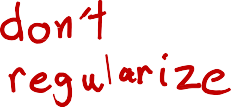 don't
regularize